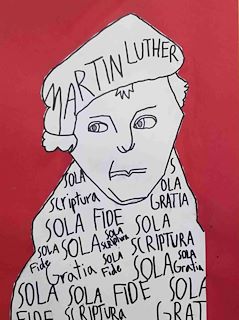 MARTIN LUTHER
SOLA
Scriptura
S
OLA
GRATIA
SOLA FIDE
SOLA
Fide
SOLA
SOLA
Scriptura
SOLA
SCRIPTURA
Gratia
SOLA
Fide
SOLA
SOLA
Gratia
SOLA SOLA SOLA
FIDE
GRATIA